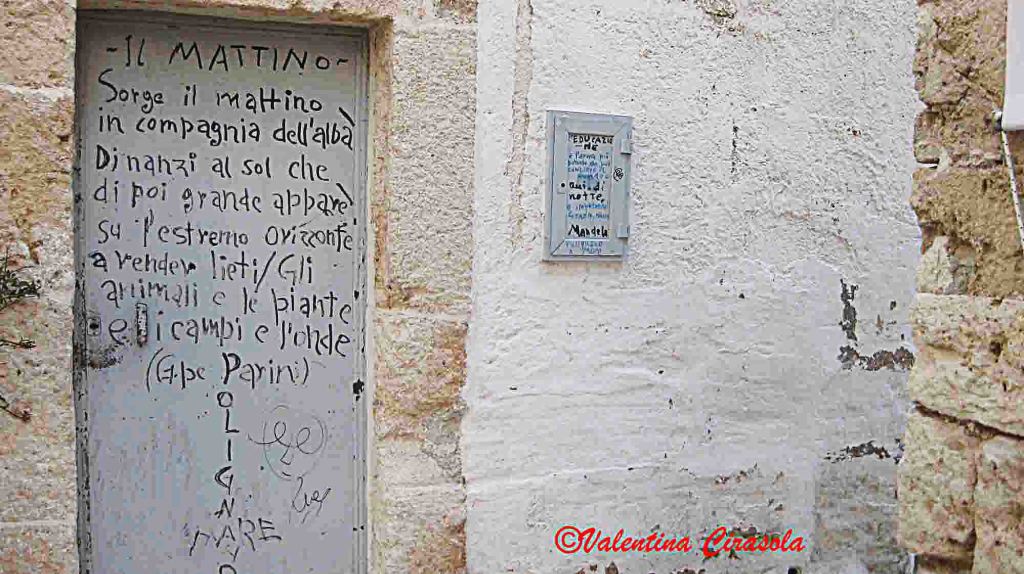 -IL MATTINO-
Sorge il mattino
in compagnia dell'albà
Dinanzi al sol che
di poi grande appare
su l'estremo orizzonte
a render lieti/Gli
animali e le piante
e li campi e l'onde
(G.pe Parini)
POLIGNANO
MARE
EDUCAZIO
NE
è l'arma più
mondo
notte,
Mandela
©Valentina Cirasola